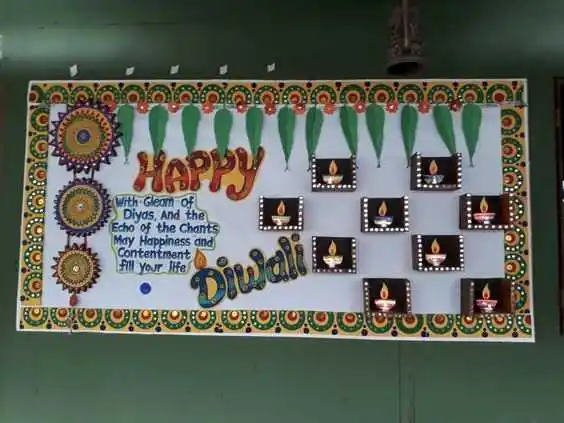 HAPPY
With Gleam of
Diyas, And the
Echo of the Chants
May Happiness and
Contentment
fill your life
Diwali